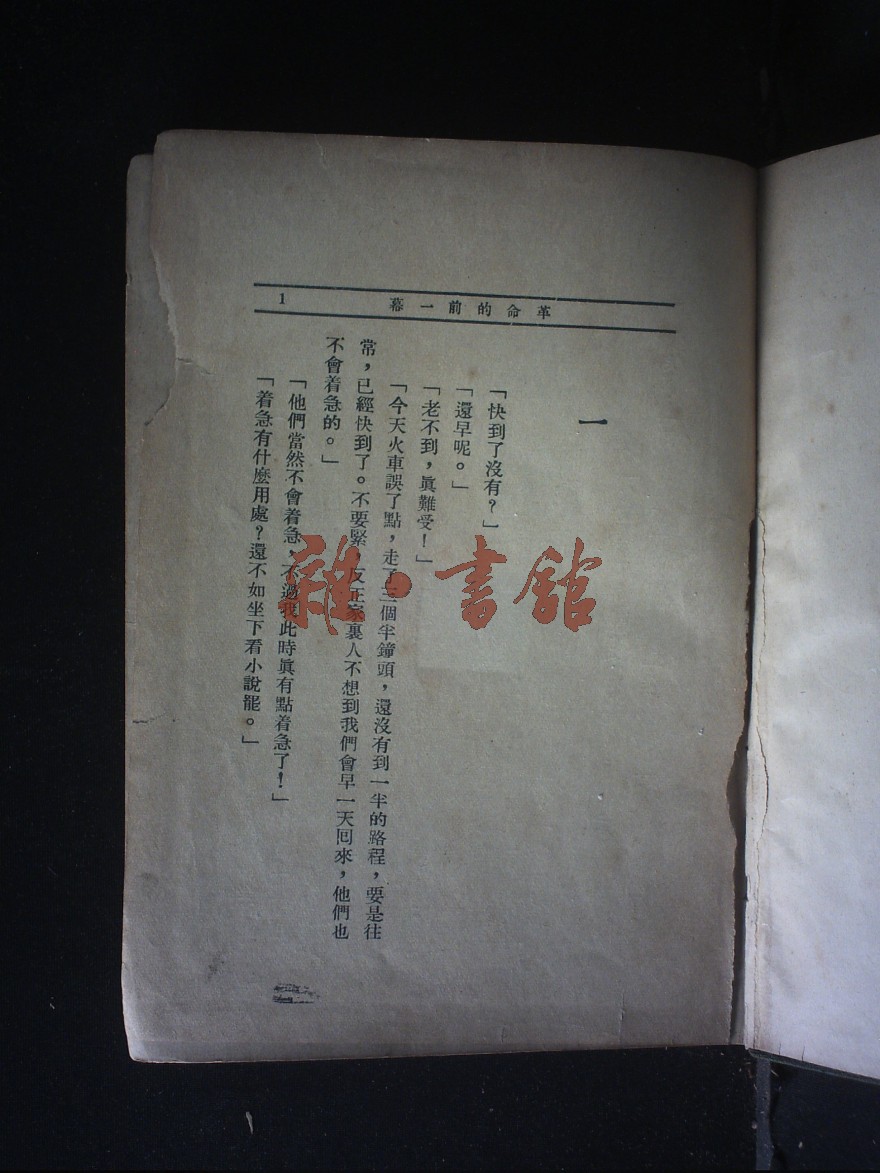 革命的前一幕
1
一
「快到了沒有？」
「還早呢。」
「老不到，眞難受！」
「今天火車誤了點，走了三個半鐘頭，還沒有到一半的路程，要是往
常，已經快到了。不要緊，反正家裏人不想到我們會早一天囘來，他們也
不會着急的。」
「他們當然不會着急，不過我此時眞有點着急了！」
「着急有什麼用處？還不如坐下看小說罷。」
雜·書館